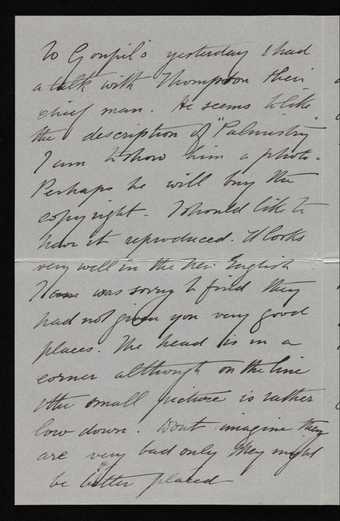 To Goupil's yesterday I had
a talk with Thompson their
chief man. He seems to like
the description of "Palmistry"
I am to show him a photo.
Perhaps he will buy the
copyright. I should like to
have it reproduced. It looks
very well in the New English
was sorry to find they
had not given you very good
places. The head is in a
corner although on the line
& the small picture is rather
low down. Dont imagine they
are very bad only they might
be better placed